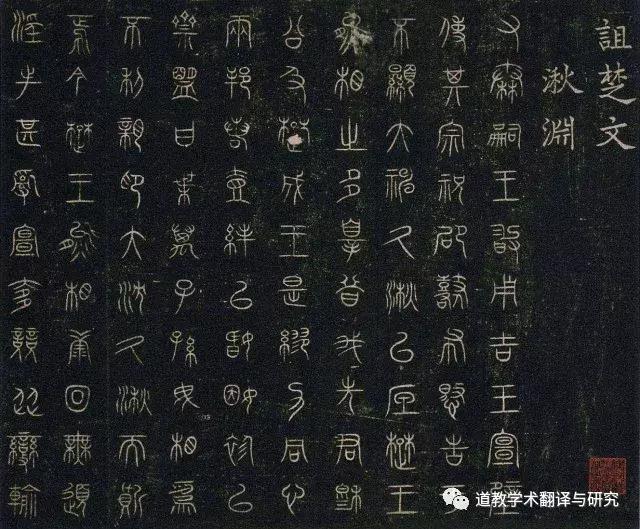 詛楚文
湫淵
又秦嗣王敢用吉玉宣璧
使其宗祝邵鼛布憝告于
不顯大神久湫以厎楚王
熊相之多辠昔我先君穆
公及楚成王是繆力同心
兩邦若壹絆以婚姻袗以
齋盟曰枼萬子孫毋相為
不利親卬大沈久湫而質
焉今楚王熊相康回無道
淫失甚亂宣奓競從變輸
道教学术翻译与研究